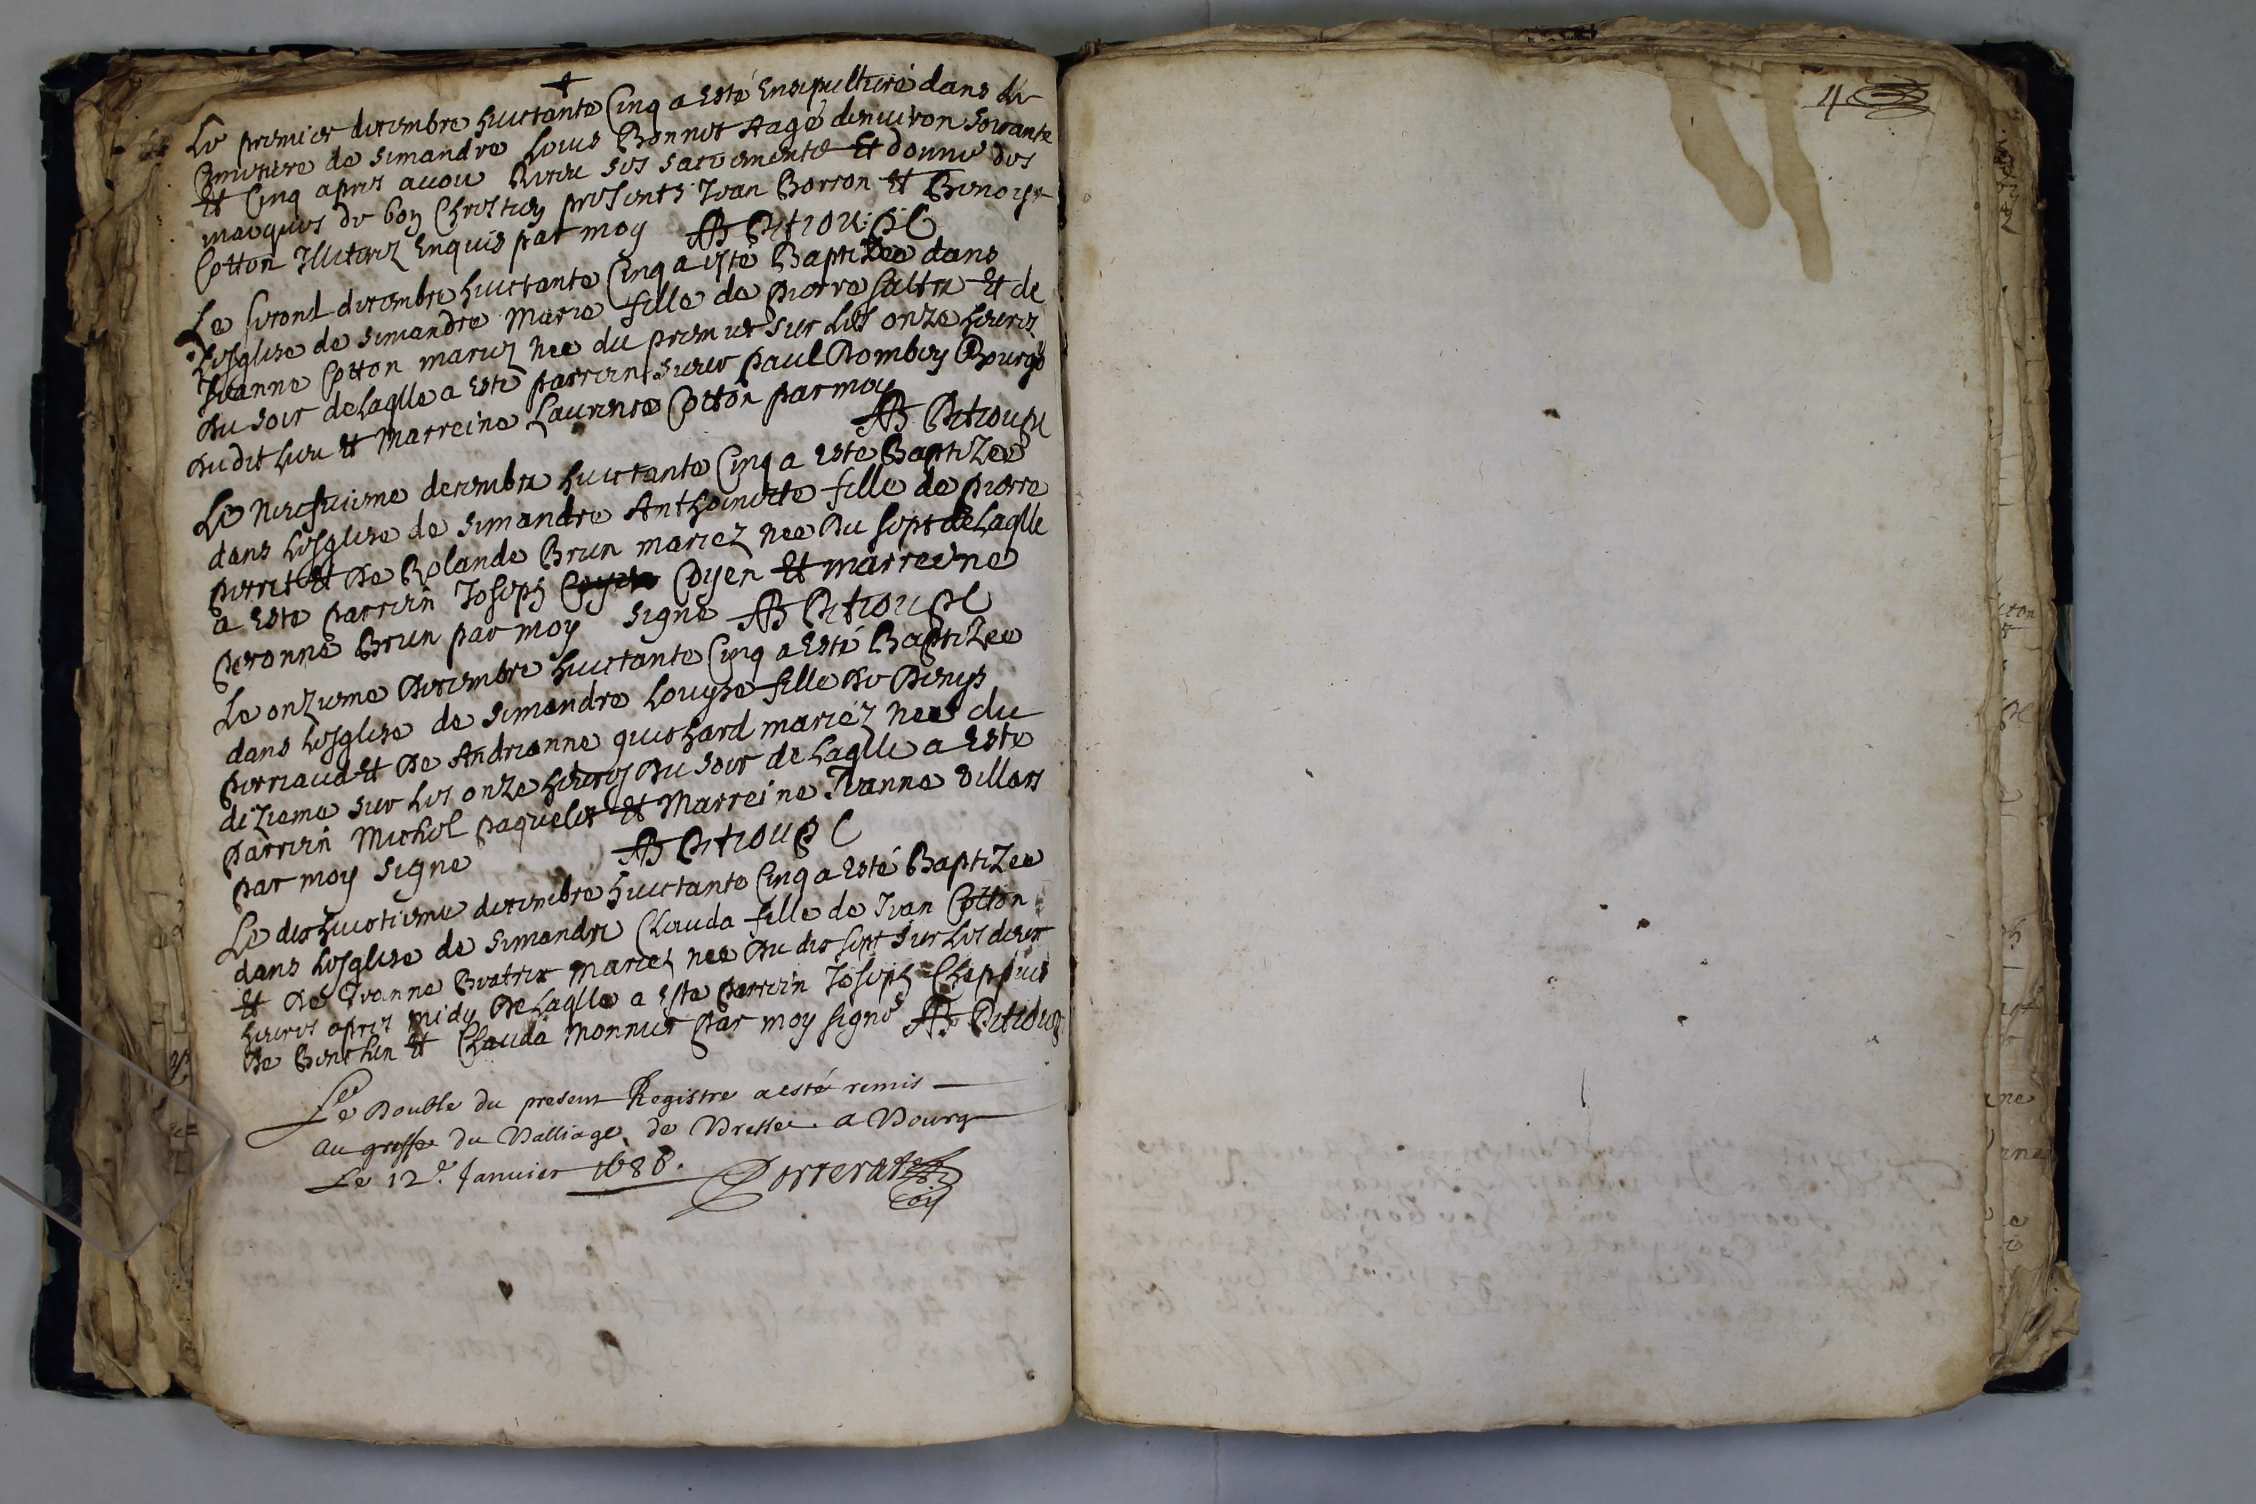 Le premier decembre huictante Cinq a esté Ensepulturé dans le
Cimistere de Simandre Louis Bonnet Aagé denuiron Soixante
Et Cinq apres auoir Receu ses sacrements Et donné des
marques de bon Chrestien presents Jean Borron Et Benoist
Cotton Illiterez Enquis par moy
Le second decembre huictante Cinq a esté Baptizée dans
Lesglise de Simandre Marie fille de Pierre Et de
Jeanne Cotton mariez née du premier sur les onze heures
Du soir de Laqlle a esté parrein sieur Paul Rombey Bourgs
Dudit lieu Et Marreine Laurence Cotton par moy
Le neufuieme decembre huictante Cinq a este Baptizée
dans Lesglise de Simandre Anthoinette fille de Pierre
Perret Et De Rolande Brun mariez née Du sept de Laqlle
a este parrein Joseph Coyen Et marreine
Peronne Brun par moy signé
Le onzieme Decembre huictante Cinq a esté Baptizée
dans Lesglise de Simandre Louyse fille De Denys
Perriaud Et De Andrianne guichard mariéz née du
dizieme sur les onze heures Du soir de Laqlle a este
Parrein Michel Paquelet Et Marreine Jeanne Villars
par moy signe
Le dixhuictieme decembre huictante Cinq a esté Baptizée
dans Lesglise de Simandre Clauda fille de Jean Cotton
Et De Yvonne Beatrix Mariez née Du dix sept sur les deux
heures apres midy De Laqlle a este Parrein Joseph Chappuis
De Et Clauda Monnier Par moy signé
Le Double du present Registre a esté remis
Au greffe du Balliage de Bresse a Bourg
Le 12e Janvier 1686.